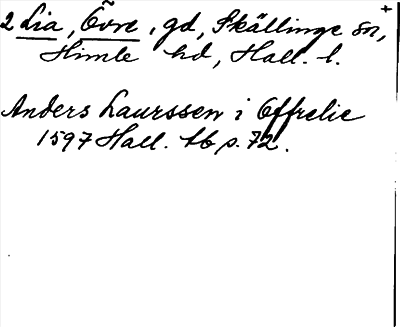 2 Lia, Övre, gd, Skällinge sn, +
Himle hd, Hall. l.
Anders Laurssen i Offrelie
1597 Hall. tb p. 72.